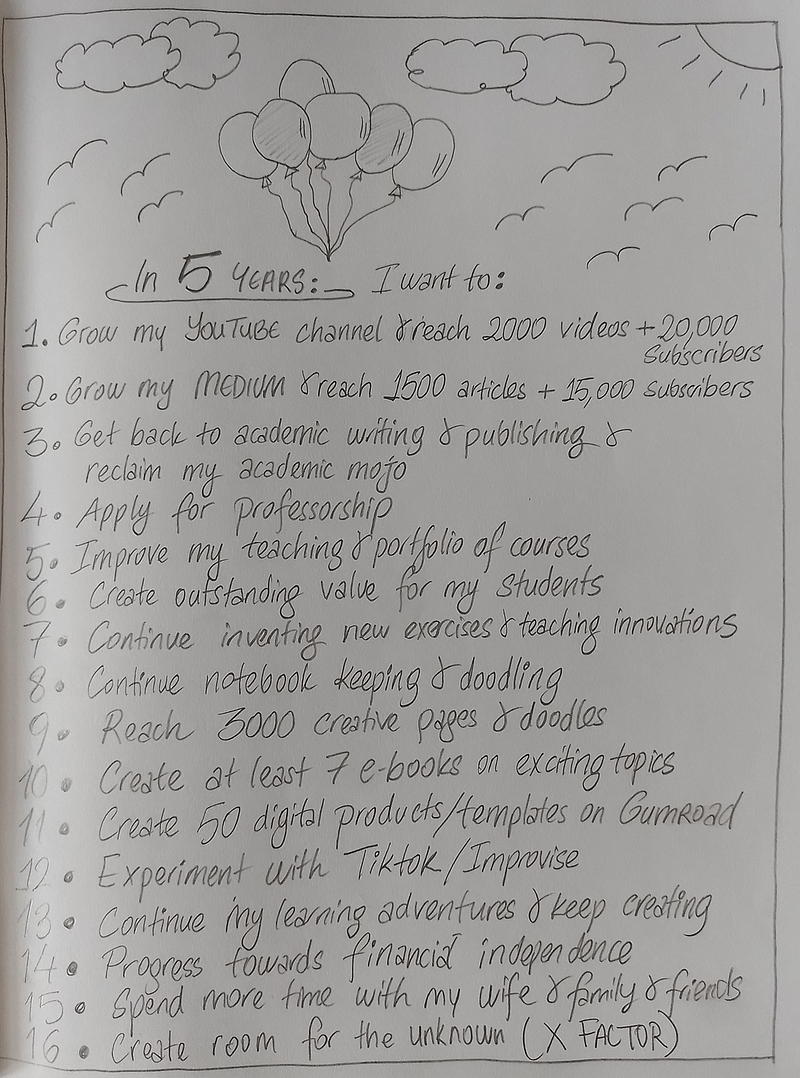 In 5 YEARS: I want to:
1. Grow my YOUTUBE channel & reach 2000 videos + 20,000
subscribers
2. Grow my MEDIUM & reach 1500 articles + 15,000 subscribers
3. Get back to academic writing & publishing &
reclaim my academic mojo
4. Apply for professorship
5. Improve my teaching & portfolio of courses
6. Create outstanding value for my students
7. Continue inventing new exercises & teaching innovations
8. Continue notebook keeping & doodling
9. Reach 3000 creative pages & doodles
10. Create at least 7 e-books on exciting topics
11. Create 50 digital products/templates on GumRoad
12. Experiment with Tiktok/Improvise
13. Continue my learning adventures & keep creating
14. Progress towards financial independence
15. Spend more time with my wife & family & friends
16. Create room for the unknown (X FACTOR)